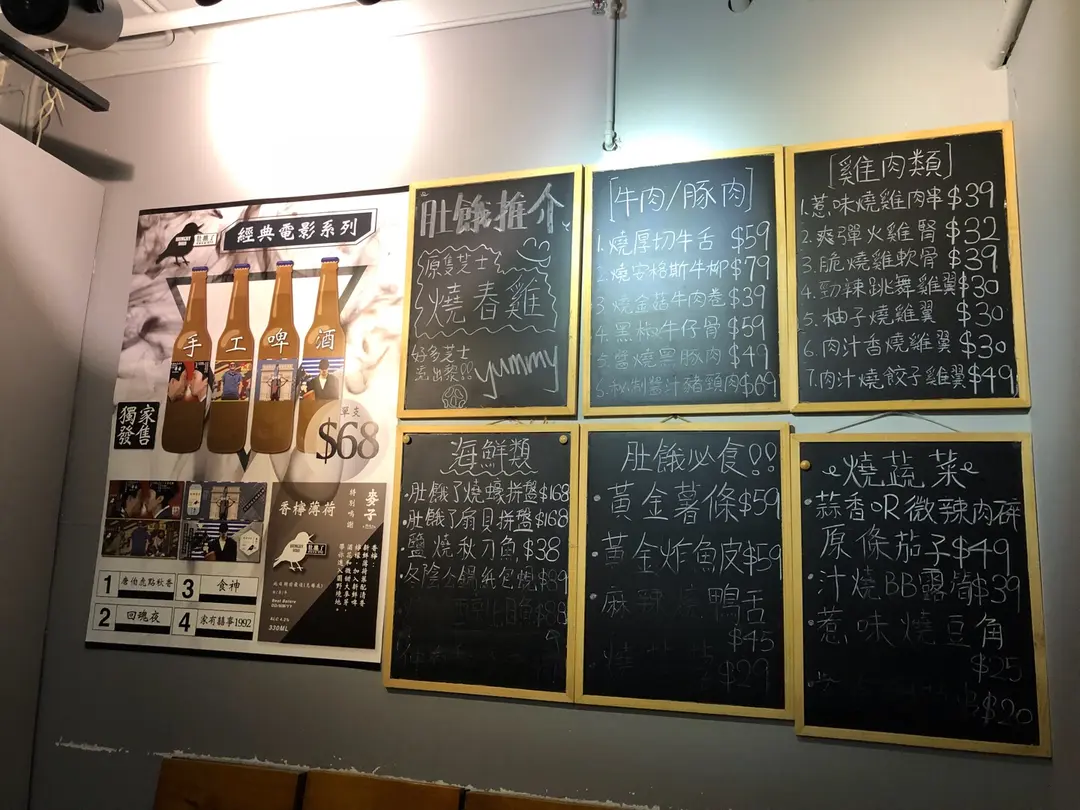 經典電影系列
手工啤酒
獨家
發售
單支
$68
香檸薄荷
麥子
特別鳴謝
330ML
1 唐伯虎點秋香
3 食神
2 回魂夜
4 家有囍事1992
肚餓推介
原隻芝士
燒春雞
好多芝士
流出黎!!
yummy
[牛肉/豚肉]
1. 燒厚切牛舌 $59
2. 燒安格斯牛柳 $79
3. 燒金菇牛肉卷 $39
4. 黑椒牛仔骨 $59
5. 醬燒黑豚肉 $49
6. 秘制醬汁豬頸肉 $69
[雞肉類]
1. 惹味燒雞肉串 $39
2. 爽彈火雞腎 $32
3. 脆燒雞軟骨 $39
4. 勁辣跳舞雞翼 $30
5. 柚子燒雞翼 $30
6. 肉汁香燒雞翼 $30
7. 肉汁燒餃子雞翼 $49
海鮮類
·肚餓了燒蠔拼盤 $168
·肚餓了扇貝拼盤 $168
·鹽燒秋刀魚 $38
·冬陰公錫紙包蜆 $89
$88
肚餓必食!!
·黃金薯條 $59
·黃金炸魚皮 $59
燒鴨舌
$45
$29
燒蔬菜
·蒜香OR微辣肉碎
原條茄子 $49
·汁燒BB露筍 $39
·惹味燒豆角
$25
$20